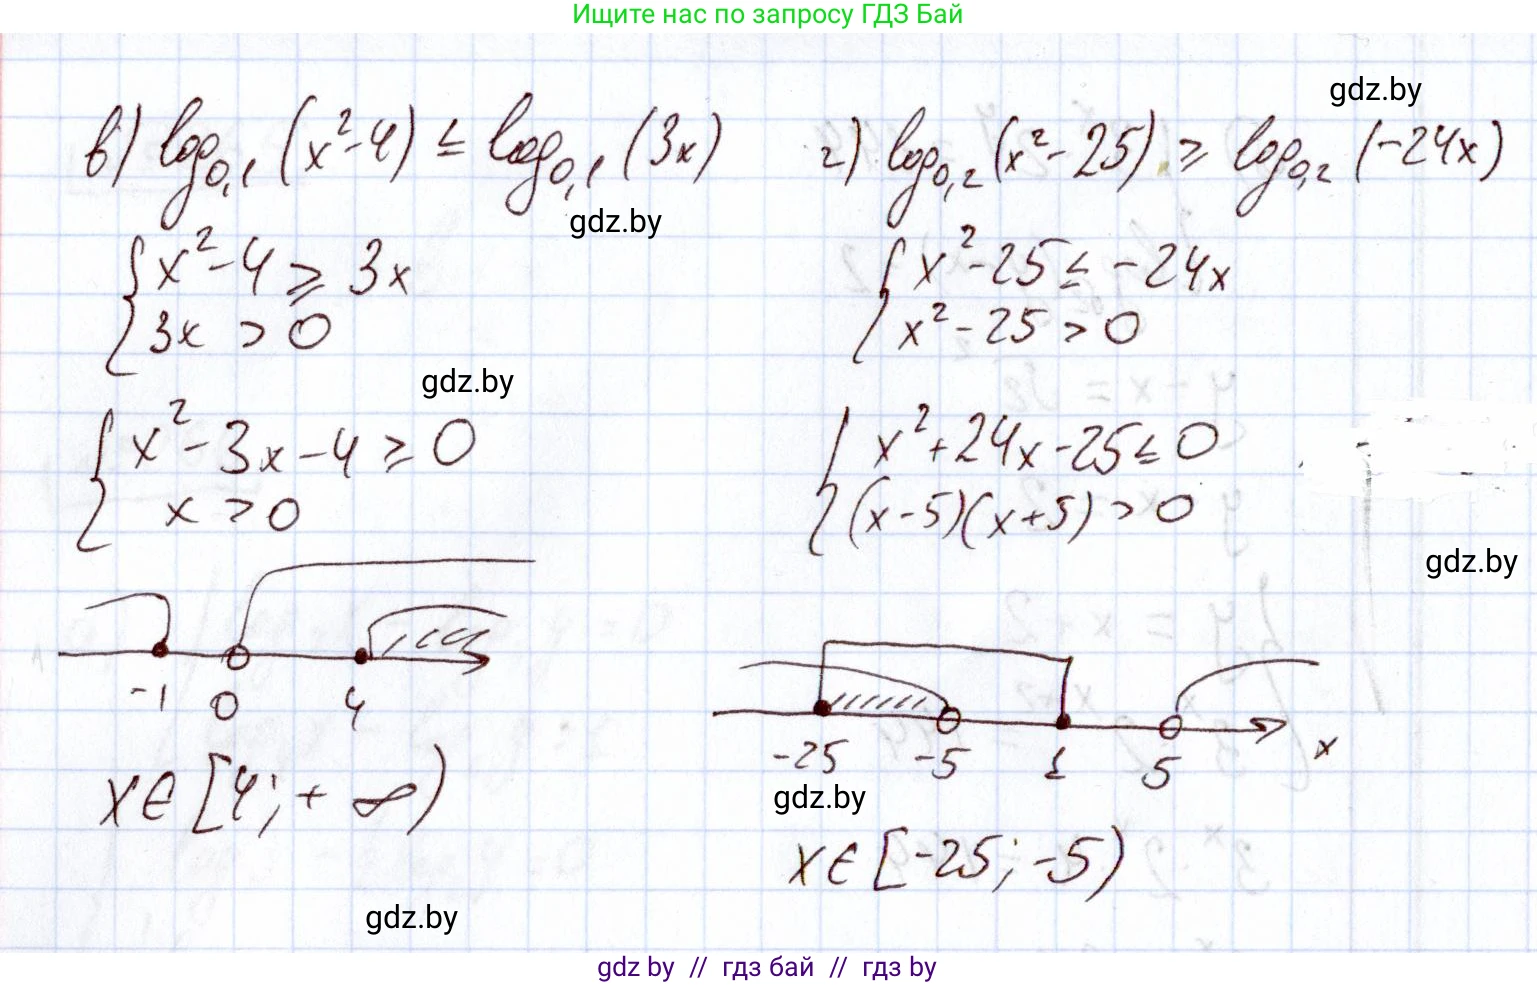 Ищите нас по запросу ГДЗ Бай
gdz.by
в) log₀,₁ (x²-4) ≤ log₀,₁ (3x)
gdz.by
{ x²-4 ⩾ 3x
3x > 0
gdz.by
{ x²-3x-4 ⩾ 0
x > 0
-1 0 4
x ∈ [4; + ∞)
gdz.by
г) log₀,₂ (x²-25) ⩾ log₀,₂ (-24x)
{ x²-25 ≤ -24x
x²-25 > 0
{ x²+24x-25 ≤ 0
(x-5)(x+5) > 0
gdz.by
-25 -5 1 5 x
gdz.by
x ∈ [-25; -5)
gdz by // гдз бай // гдз by